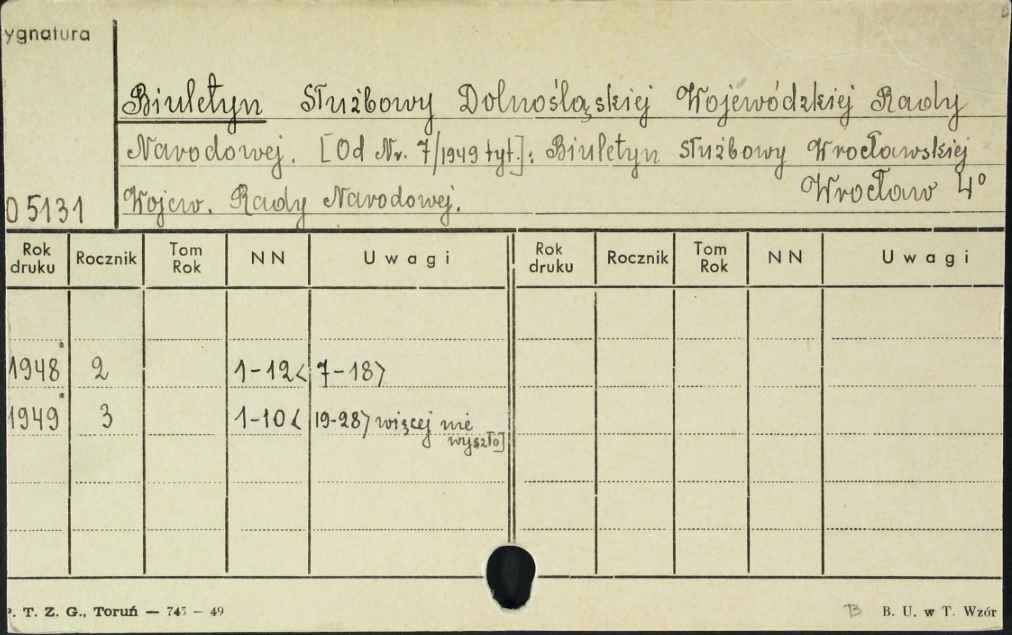 ygnatura
Biuletyn Służbowy Dolnośląskiej Wojewódzkiej Rady
Narodowej. [Od Nr. 7/1949 tyt.]: Biuletyn służbowy Wrocławskiej
05131 Wojew. Rady Narodowej. Wrocław 4°
Rok druku Rocznik Tom Rok NN Uwagi Rok druku Rocznik Tom Rok NN Uwagi
1948 2 1-12< 7-18>
1949 3 1-10< 19-28> więcej nie
wyszło]
P. T. Z. G., Toruń — 745 — 49 B. U. w T. Wzór